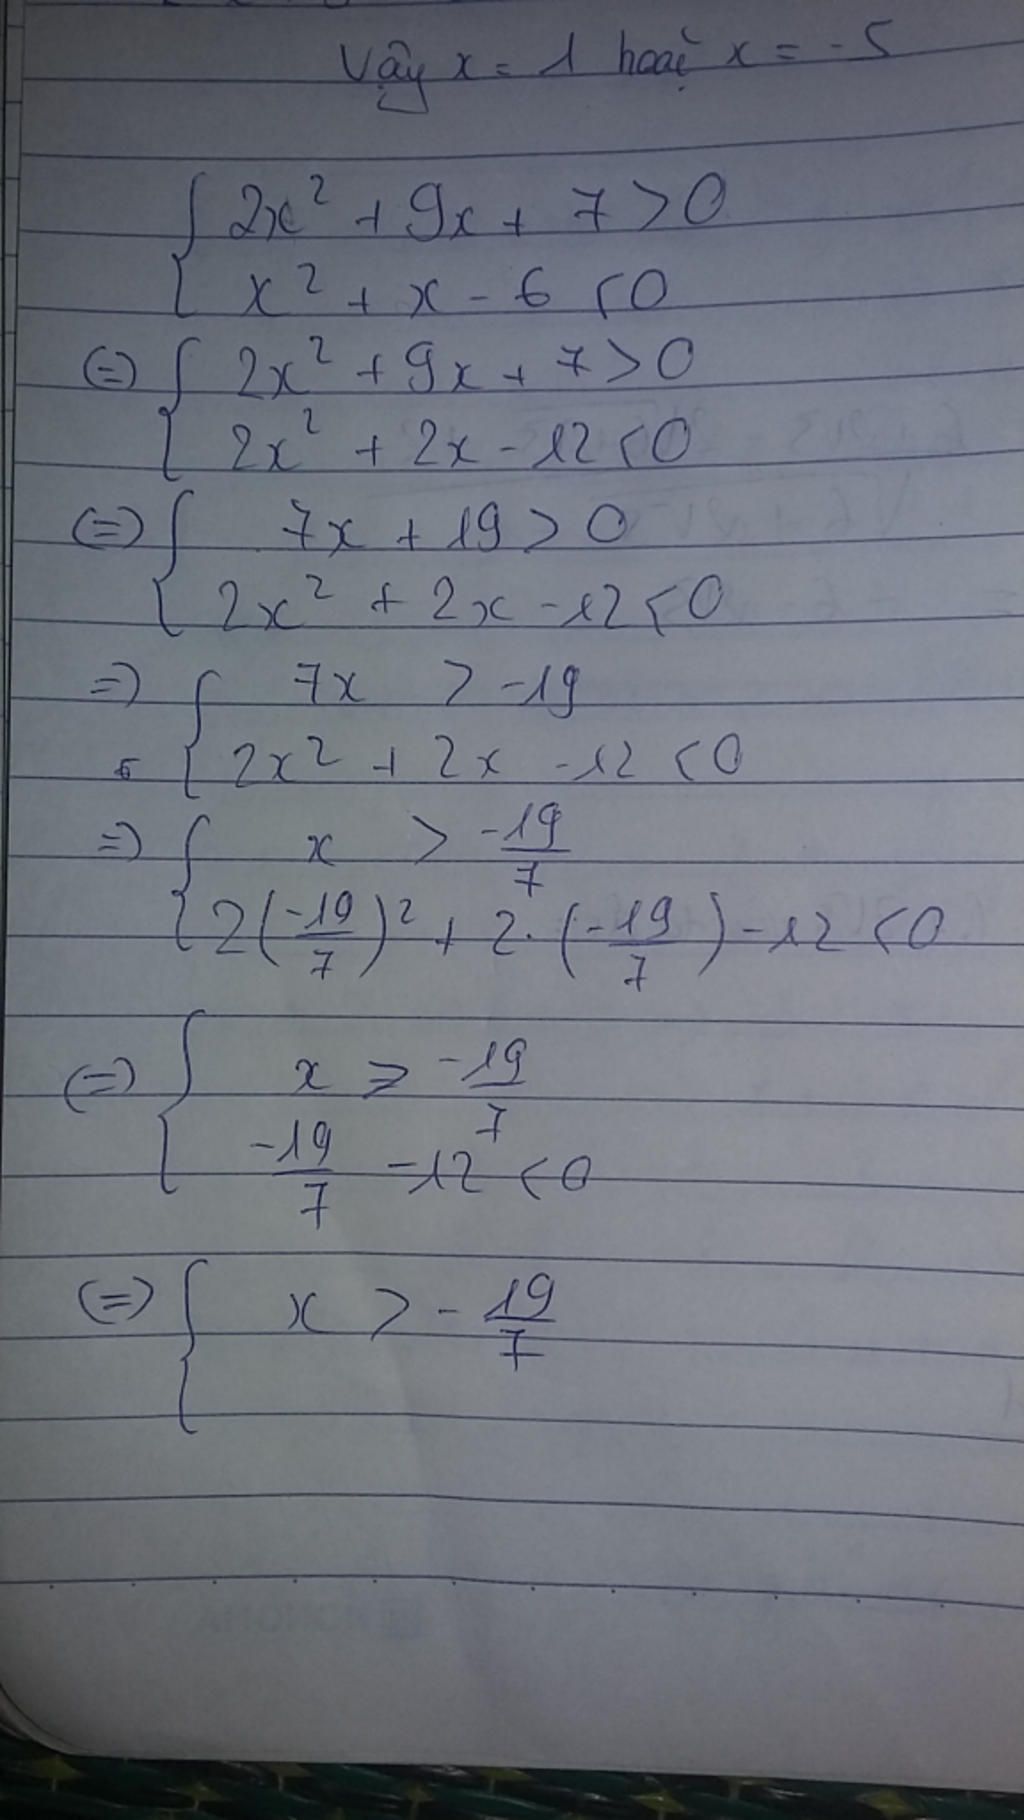 Vậy x = 1 hoặc x = -5
{ 2x² + 9x + 7 > 0
x² + x - 6 < 0
(=) { 2x² + 9x + 7 > 0
2x² + 2x - 12 < 0
(=) { 7x + 19 > 0
2x² + 2x - 12 < 0
=) { 7x > -19
2x² + 2x - 12 < 0
=) { x > -19/7
2(-19/7)² + 2.(-19/7) - 12 < 0
(=) { x > -19/7
-19/7 - 12 < 0
(=) { x > -19/7